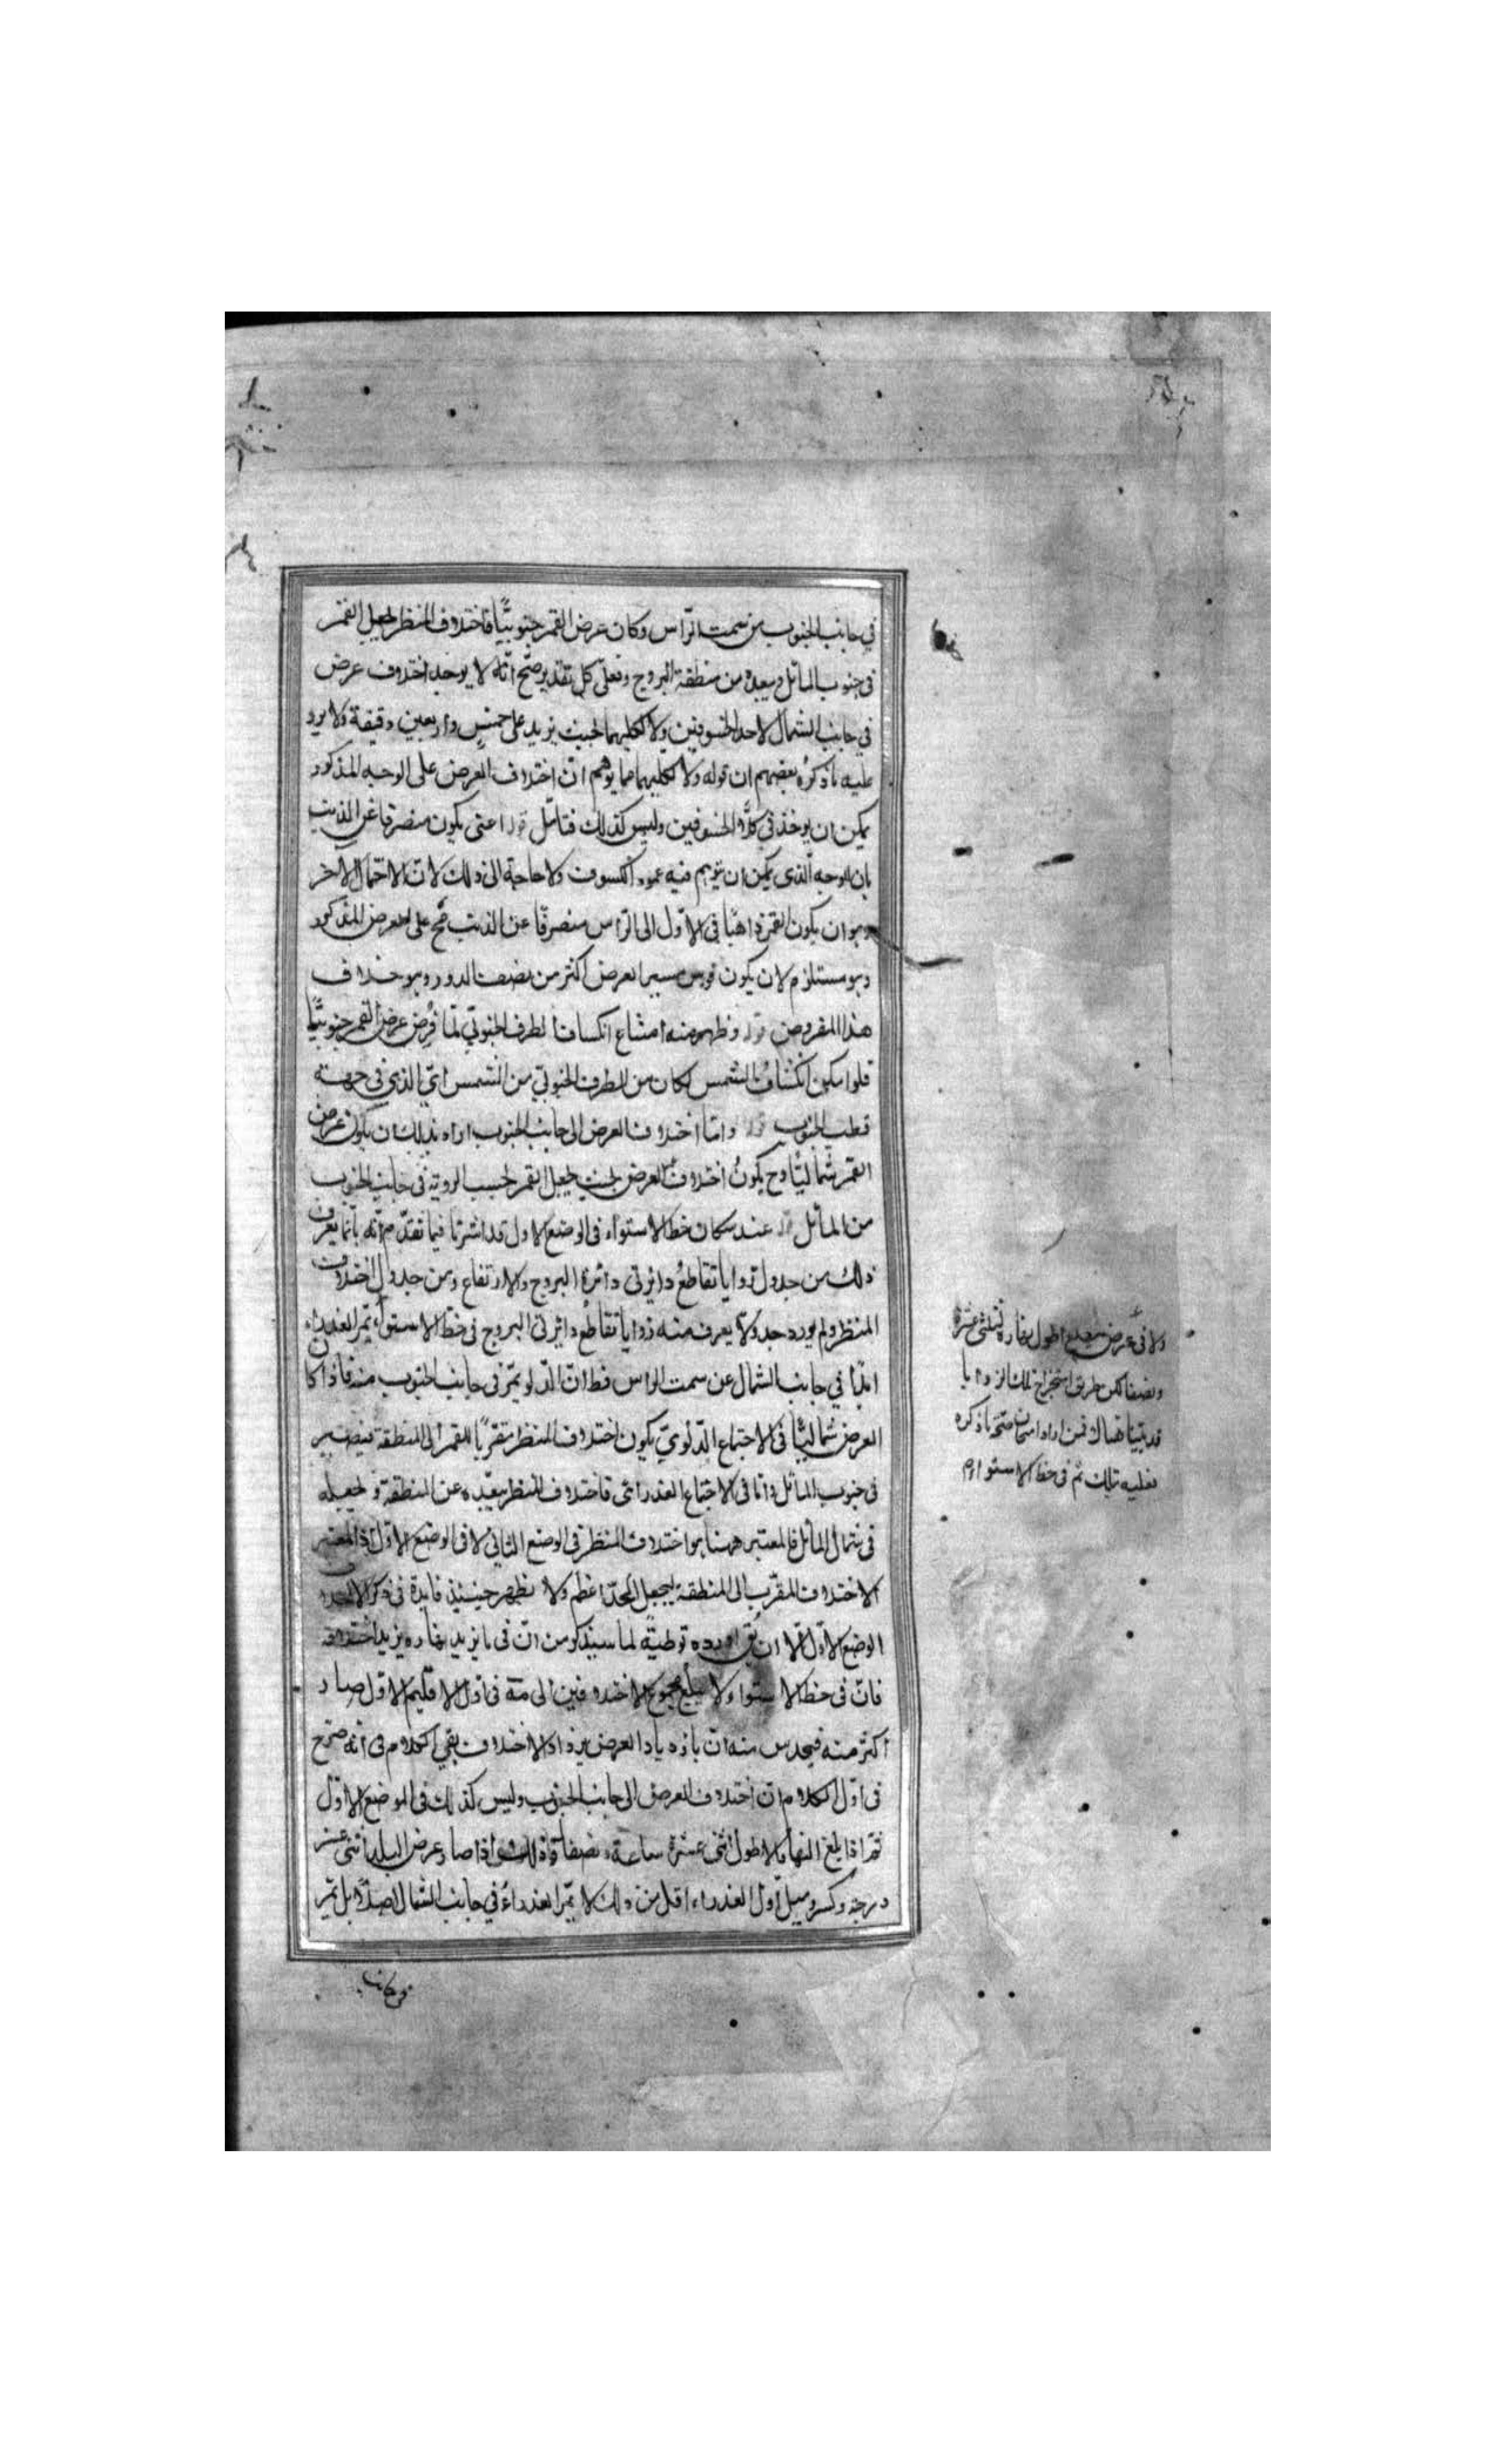 في جانب الجنوب من سمت الرّأس وكان عرض القمر جنوبيًّا فاختلاف المنظر يجعل القمر
في جنوب المائل ويبعده من منطقة البروج وفعلى كل تقدير صحّ انّه لا يوجد اختلاف عرض
في جانب الشمال لاحد الخسوفين ولا لكليهما بحيث يزيد على خمسٍ واربعين دقيقة ولا يرد
عليه ما ذكره بعضهم ان قوله ولا لكليهما مما يوهم انّ اختلاف العرض على الوجه المذكور
يمكن ان يوخذ في كلا الخسوفين وليس كذلك فتامّل قوله اعنى يكون منصرفا عن الذنب
بان الوجه الذى يمكن ان يتوهم فيه عود الكسوف ولا حاجة الى ذلك لانّ الاحتمال الاخر
وهو ان يكون القمر ذاهبًا في الاوّل الى الرّاس منصرفًا عن الذنب صحّ على العرض المذكور
وهو مستلزم لان يكون قوس مسير العرض اكثر من نصف الدور وهو خلاف
هذا المفروض قوله وظهر منه امتناع انكساف الطرف الجنوبيّ لمّا فرض عرض القمر جنوبيًّا
فلو امكن انكساف الشمس لكان من الطرف الجنوبيّ من الشمس اي الذي في جهة
قطب الجنوب قوله وامّا اختلاف العرض الى جانب الجنوب اراد بذلك ان يكون عرض
القمر شماليًّا وح يكونُ اختلاف العرض بحيث يجعل القمر بحسب الروية في جانب الجنوب
من المائل قوله عند سكان خط الاستواء فى الوضع الاول قد اشرنا فيما تقدّم انّه بانّما يعرف
ذلك من جدول زوايا تقاطع دائرتى دائرة البروج والارتفاع ومن جدول اختلاف
المنظر ولم يورد جدولا يعرف منه زوايا تقاطع دائرتى البروج في خط الاستواء يمرّ العذراء
ابدًا في جانب الشمال عن سمت الراس قط انّ الدّلو يمرّ في جانب الجنوب منه فاذا كان
العرض شماليًّا في الاجتماع الدّلويّ يكون اختلاف المنظر مقرّبًا للقمر الى المنطقة فيصير
في جنوب المائل وامّا في الاجتماع العذرائى فاختلاف المنظر يبعّده عن المنطقة ويجعله
في شمال المائل فالمعتبر ههنا هو اختلاف المنظر في الوضع الثانى لا في الوضع الاوّل اذ المعتبر
الاختلاف المقرّب الى المنطقة ليجعل الحدّ اعظم ولا يظهر حينئذٍ فايدة في ذكر الاختلاف
الوضع الاوّل الّا ان يُق اورده توطئةً لما سيذكر من انّ في ما يزيد نهاره يزيد اختلافه
فانّ في خط الاستواء لا يبلغ مجموع الاختلافين الى مة في اوّل الاقليم الاوّل صار
اكثر منه فيحدس منه انّ بازدياد العرض يزداد الاختلاف بقي الكلام في انّه صرّح
في اوّل الكلام انّ اختلاف العرض الى جانب الجنوب وليس كذلك في الموضع الاوّل
ثمّ اذا بلغ النهار الاطول اثنى عشرة ساعة ونصفا وذلك اذا صار عرض البلد اثنى عشر
درجة وكسر وميل اوّل العذراء اقل من ذلك لا يمرّ العذراءُ في جانب الشمال اصلًا بل يمرّ
في جانب
ولا في عرض اطول نهاره لثلثى عشرة
ونصفا لكن طريق استخراج تلك الزوايا
قد بيّناها هناك فمن اراد امتحان صحّة ما ذكره
فعليه بتلك ثم في خط الاستواء